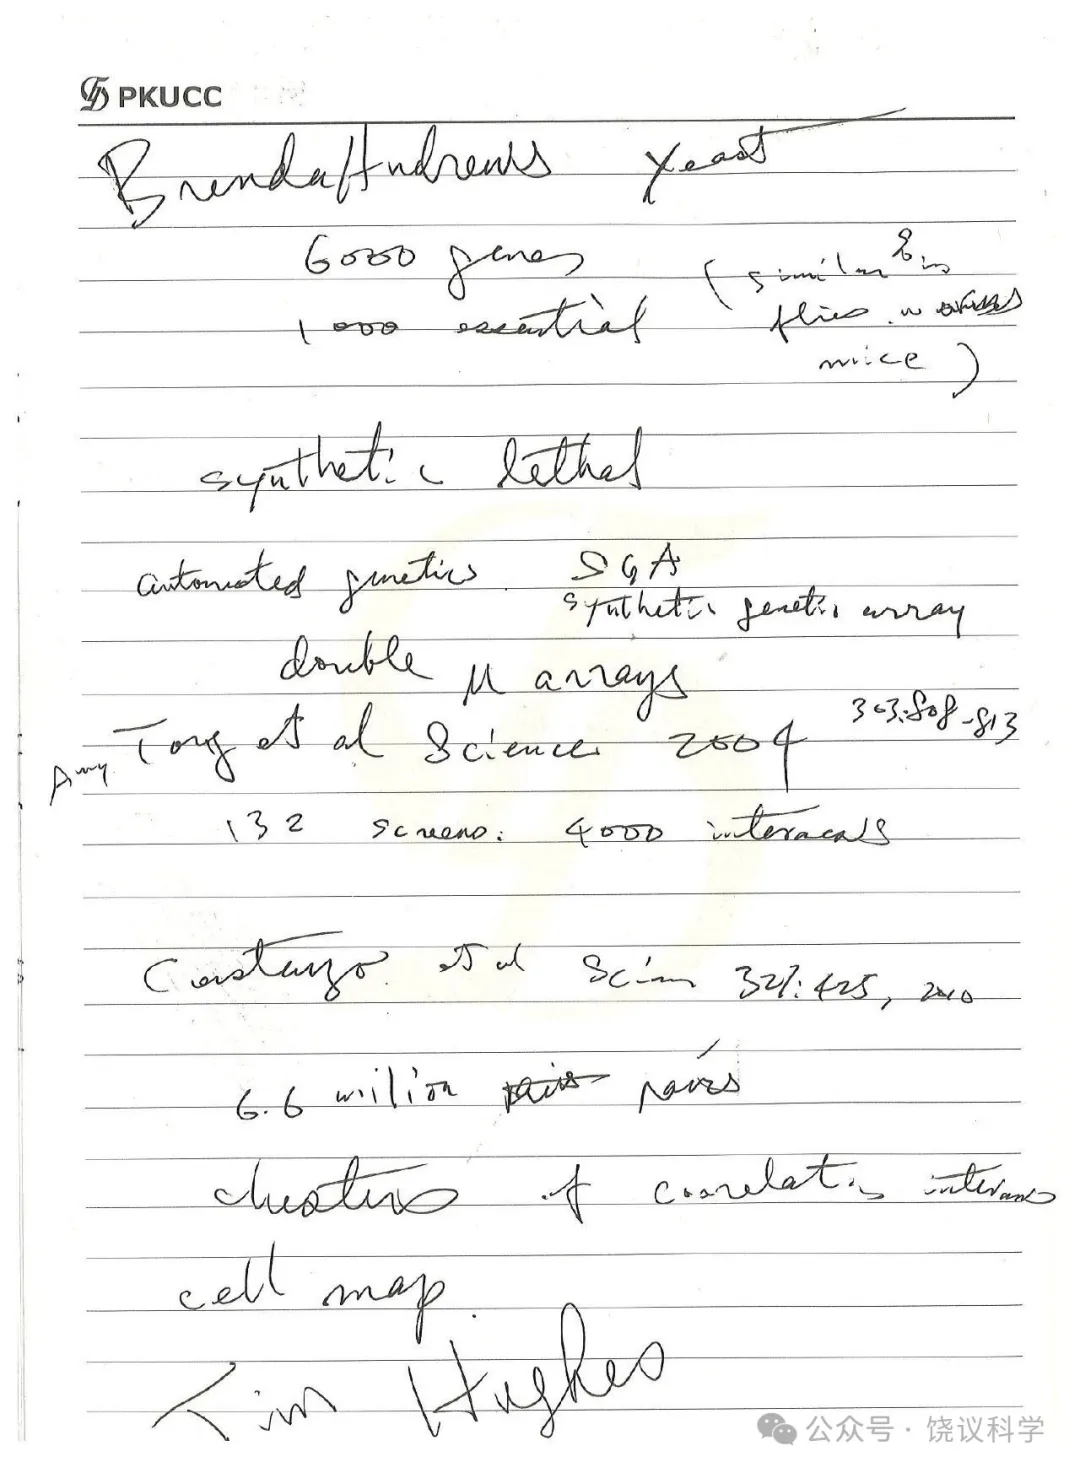 PKUCC
Brenda Andrews Yeast
6000 genes
(similar % in
1000 essential flies. worms
mice)
synthetic lethal
automated genetics. SGA
synthetic genetic array
double μ arrays
Amy Tong et al Science 2004 303:808-813
132 screens. 4000 interacals
Costanzo et al Scien 327:425, 2010
6.6 million pairs
clusters of correlatis
cell map.
Tim Hughes
公众号 · 饶议科学